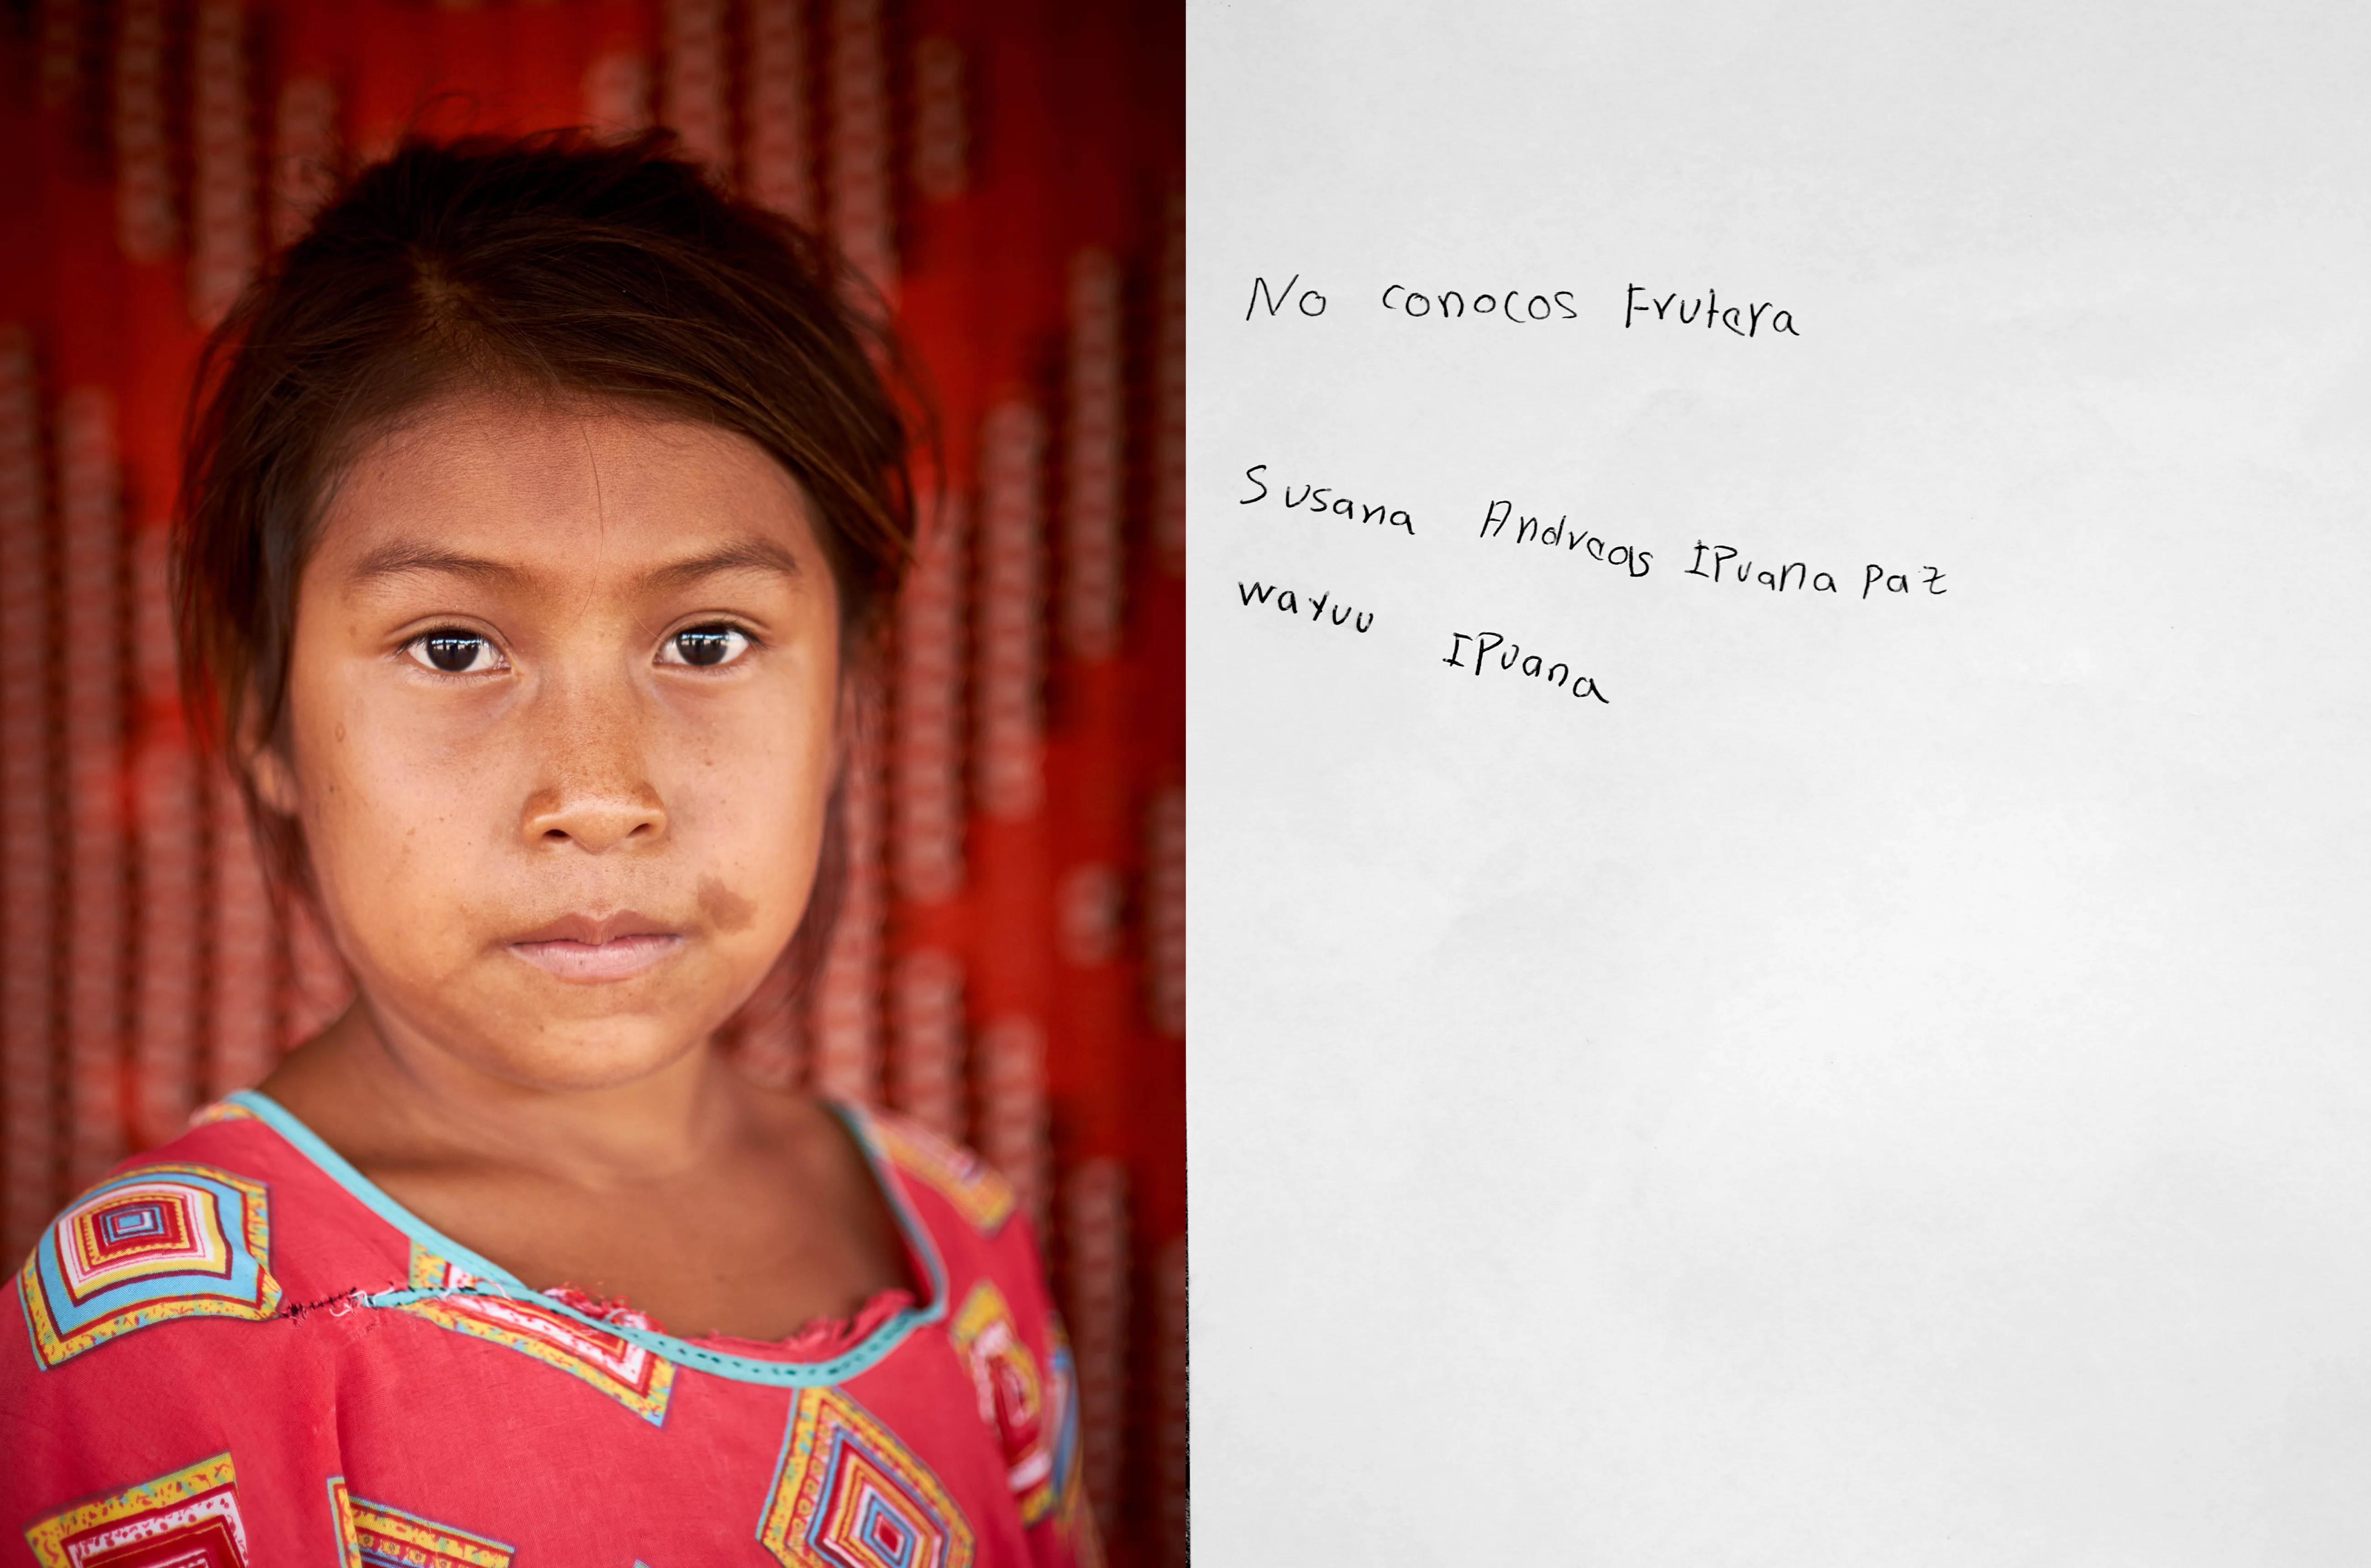 No conocos Frutera
Susana Andreas IPuana paz
wayuu IPuana